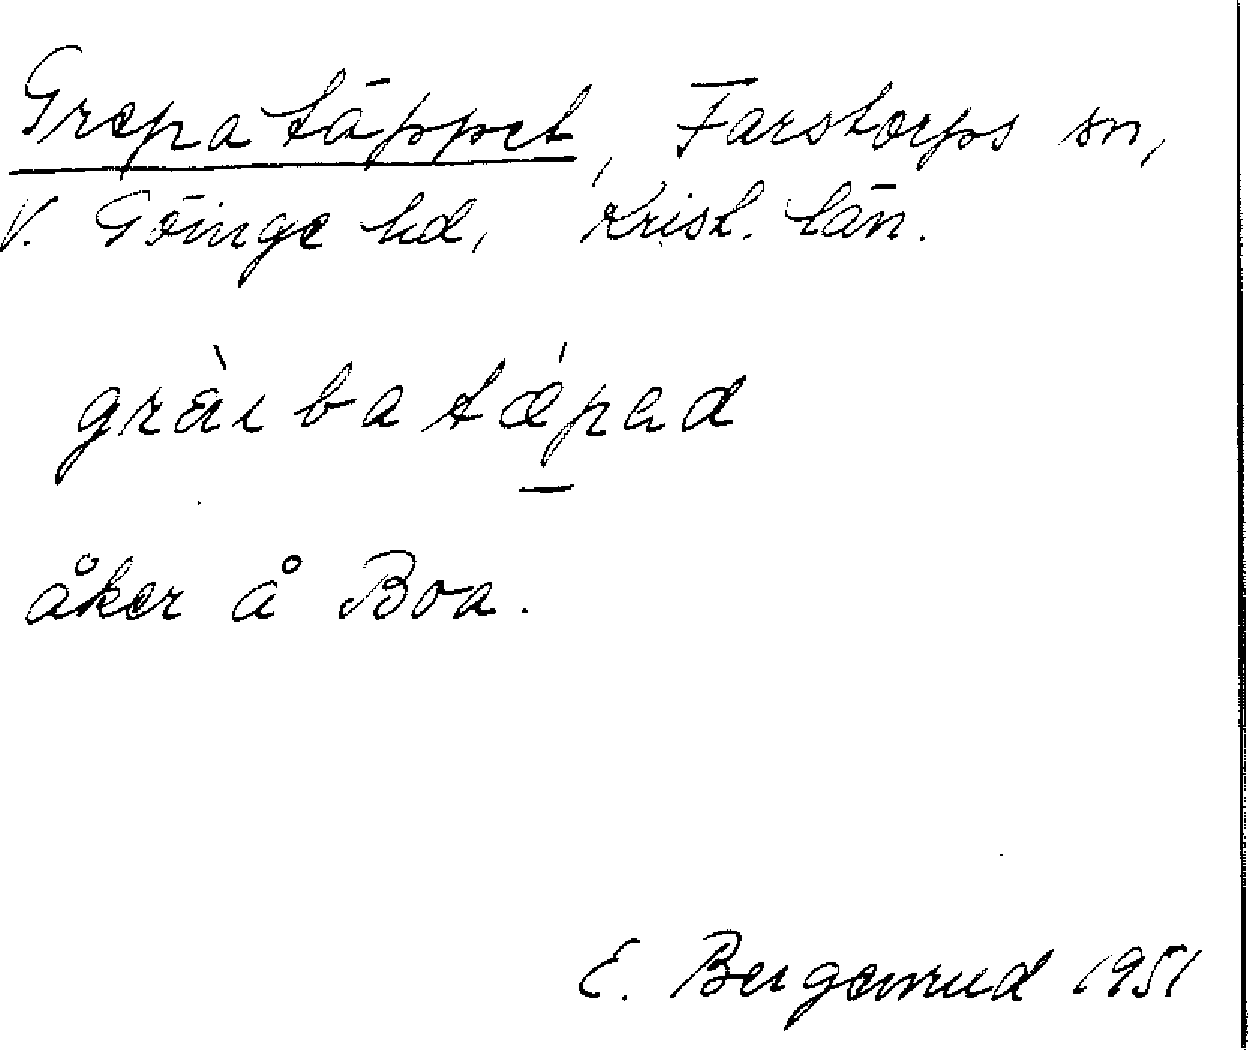 Grepatäppet, Farstorps sn,
V. Göinge hd, Krist. län.
gràıbatǽpad
åker å Boa.
E. Bergenrud 1951